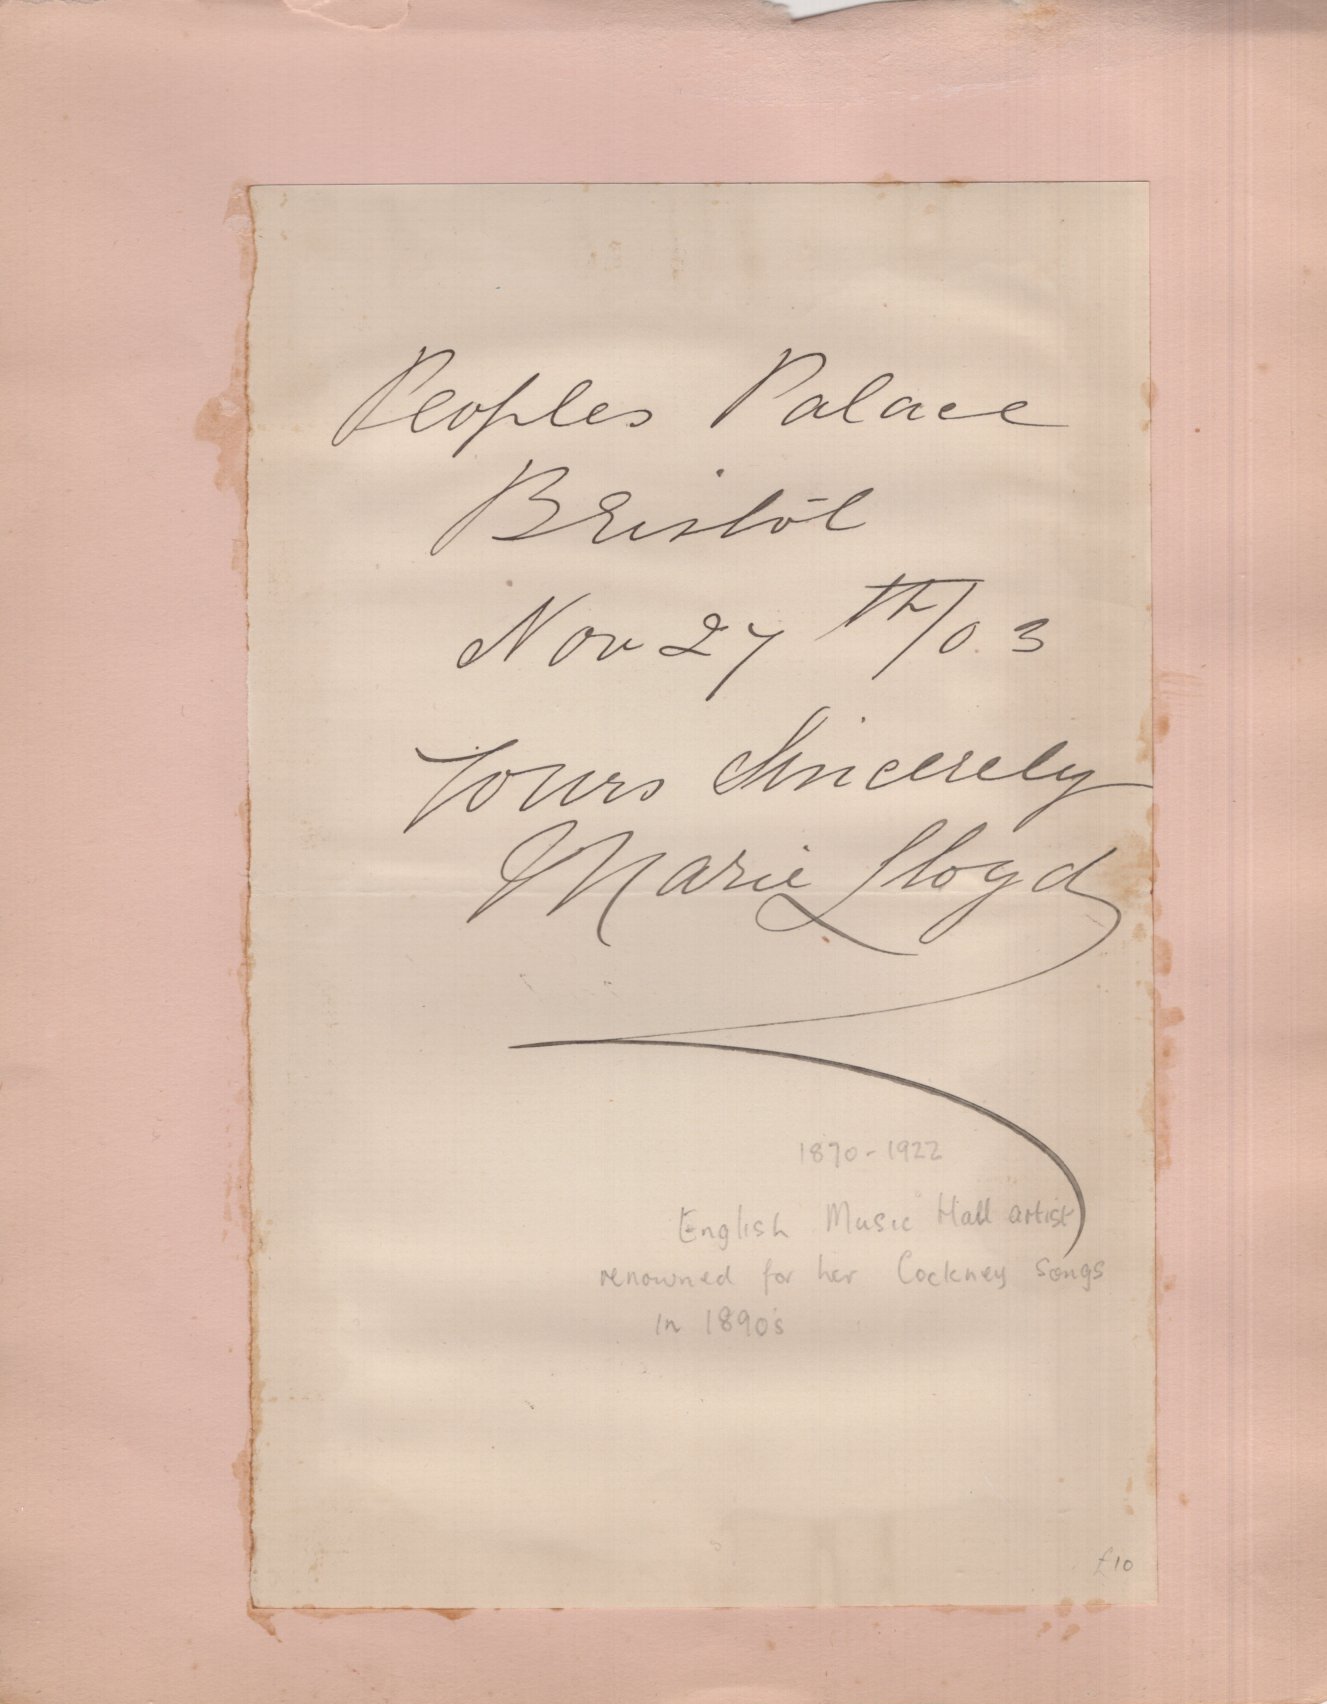 Peoples Palace
Bristol
Nov 27th/03
Yours Sincerely
Marie Lloyd
1870-1922
English Music Hall artist
renowned for her Cockney songs
in 1890's
£10